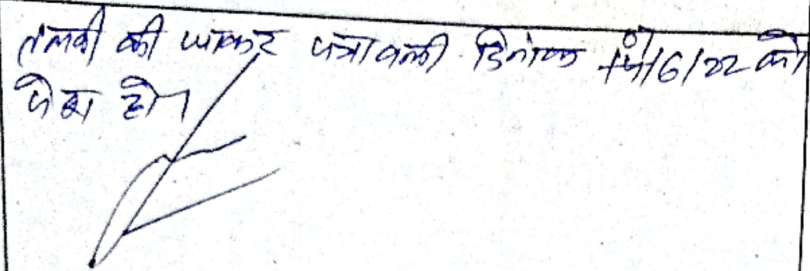 तलबी की जाकर पत्रावली दिनांक /6/22 को
पेश हो।